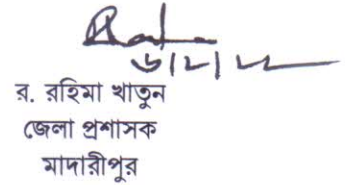 র. রহিমা খাতুন
জেলা প্রশাসক
মাদারীপুর